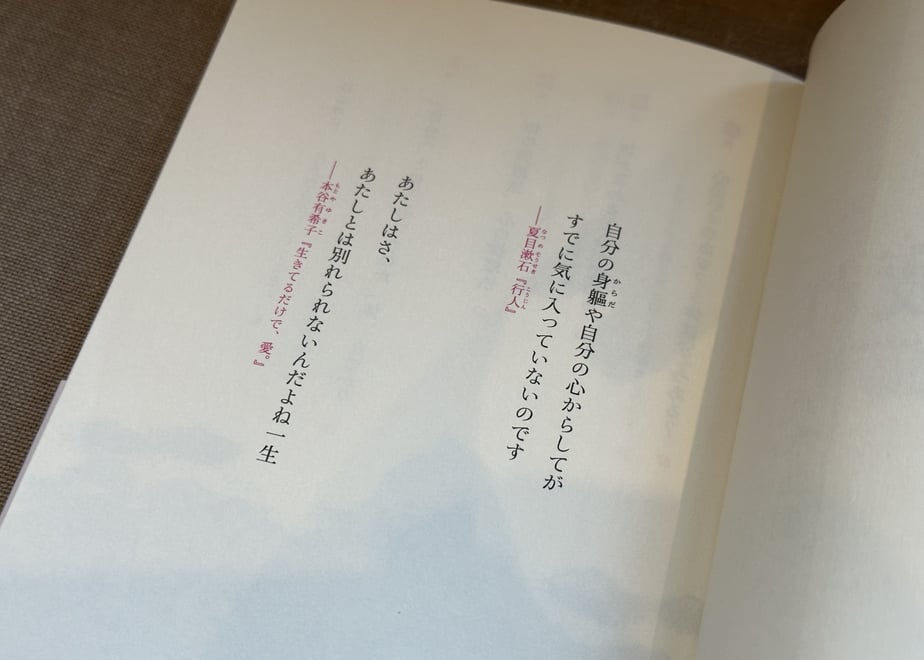 自分の身軀や自分の心からしてが
すでに気に入っていないのです
──夏目漱石『行人』
あたしはさ、
あたしとは別れられないんだよね一生
──本谷有希子『生きてるだけで、愛。』